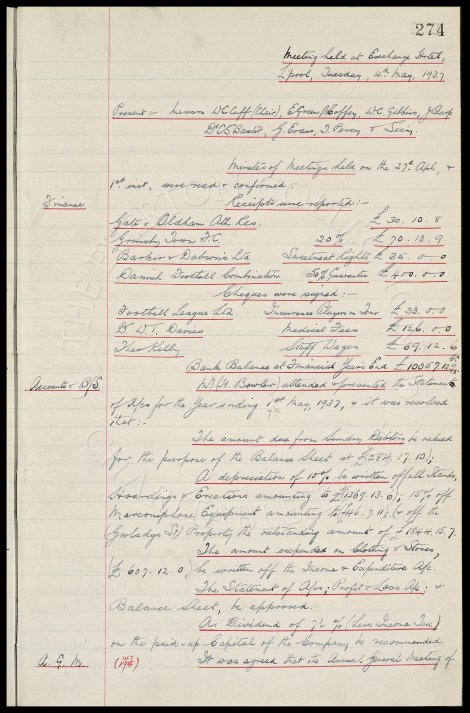 274
Meeting held at Exchange Hotel,
L'pool, Tuesday, 4th May, 1937
Present:- Messrs W.C. Cuff (Chair), E. Green, Coffey, W.C. Gibbins, J. Sharp
Dr C.S. Baxter, G. Evans, T. Percy & Secy.
Minutes of Meetings held on the 27th Apl, &
1st inst, were read & confirmed.
Finance
Receipts were reported:-
Gate v Oldham Ath Res. £ 30. 10. 8
Grimsby Town F.C. 20% £ 70. 13. 9
Barker & Dobsons Ltd Sweetmeat Rights £ 35. 0. 0
Danish Football Combination 50% Guarantee £ 400. 0. 0
Cheques were signed:-
Football League Ltd. Insurance Players on Tour £ 33. 0. 0
Dr W.T. Davies Medical Fees £ 126. 0. 0
Theo Kelly Staff Wages £ 69. 12. 6
Bank Balance at Financial Years End £ 10057. 12.
Accounts & B/S.
Mr (A. Bowler) attended & presented the Statements
of A/cs for the Year ending 1st May, 1937, & it was resolved
that:-
The amount due from Sundry Debtors be valued
for the purpose of the Balance Sheet at £284. 17. 10;
A depreciation of 10% be written off all Stands,
Hoardings & Erections amounting to £1369. 13. 6; 15% off
Marconiphone Equipment amounting to £46. 7. 11; & off the
(Gwladys St) Property the outstanding amount of £1844. 15. 7.
The amount expended on Clothing & Stores,
(£ 607. 12. 0) be written off the Income & Expenditure A/c.
The Statement of A/cs; Profit & Loss A/c; &
Balance Sheet, be approved.
A. Dividend of 7½ % (Less Income Tax)
on the paid-up Capital of the Company be recommended.
A. G. M.
It was agreed that the Annual General Meeting of